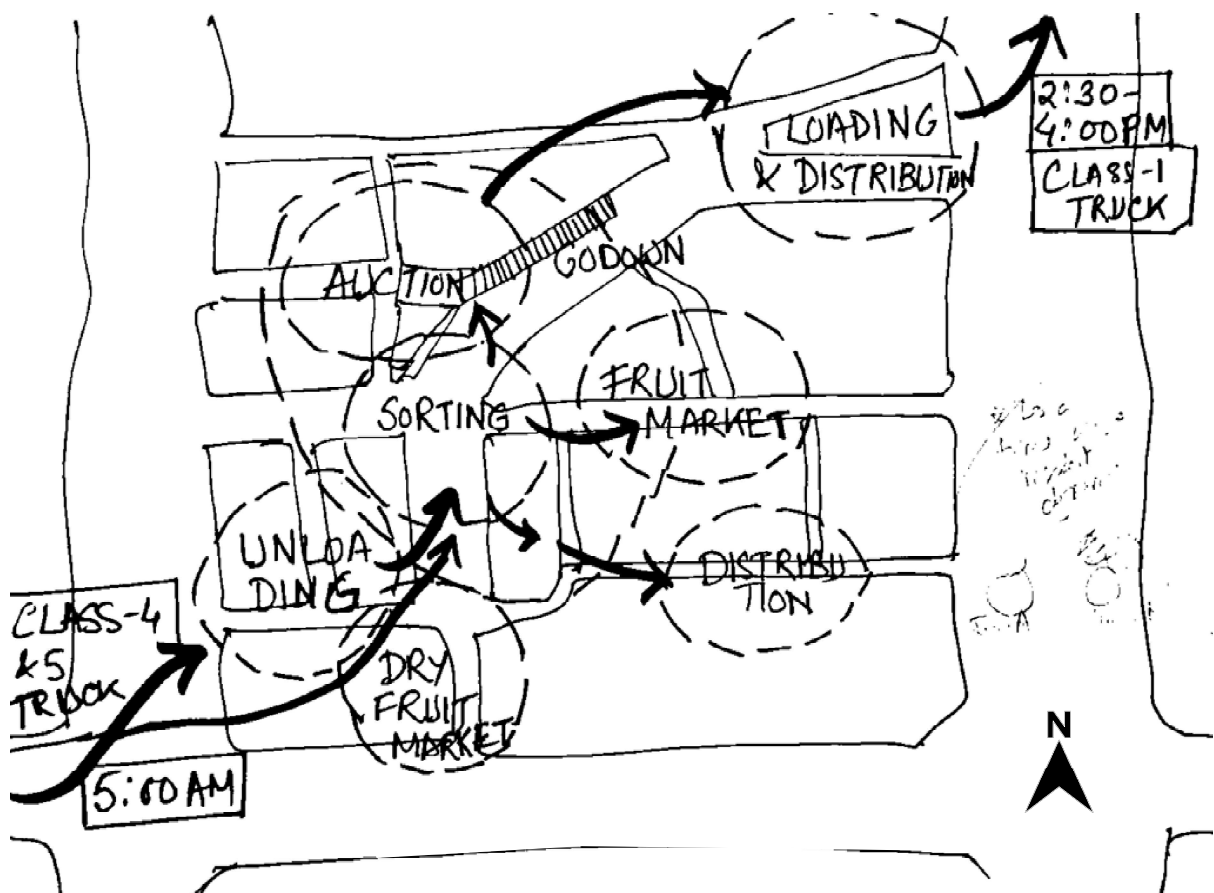 LOADING
& DISTRIBUTION
2:30-
4:00PM
CLASS-1
TRUCK
GODOWN
AUCTION
FRUIT
MARKET
SORTING
UNLOA
DING
DISTRIBU
TION
CLASS-4
&5
TRUCK
DRY
FRUIT
MARKET
5:00AM
N